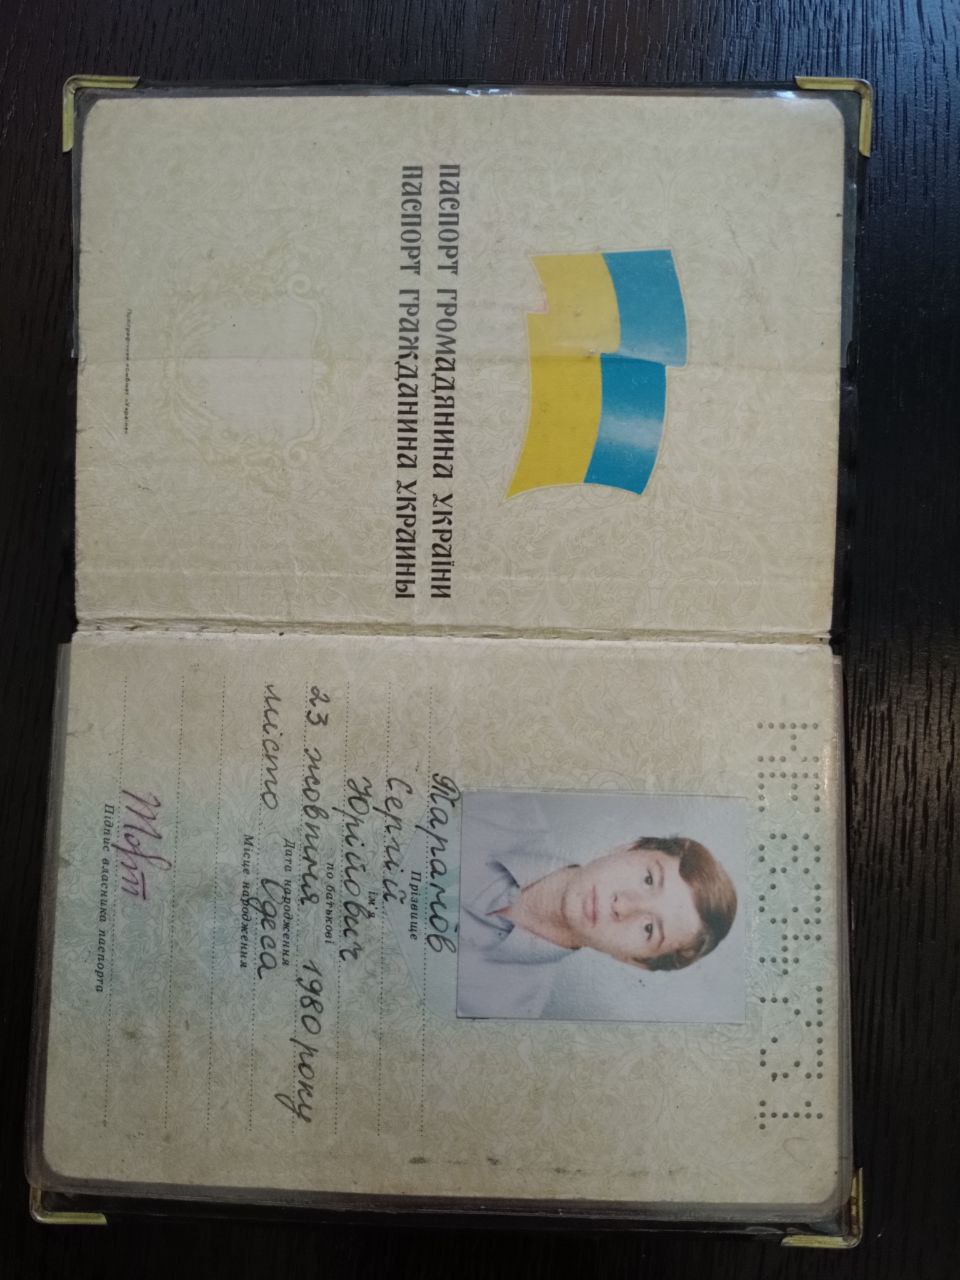 ПАСПОРТ ГРОМАДЯНИНА УКРАЇНИ
ПАСПОРТ ГРАЖДАНИНА УКРАИНЫ
Поліграфічний комбінат «Україна»
МЕ 834731
Таранов
Прізвище
Сергій
ім'я
Юрійович
по батькові
23 жовтня 1980 року
Дата народження
місто Одеса
Місце народження
Підпис власника паспорта